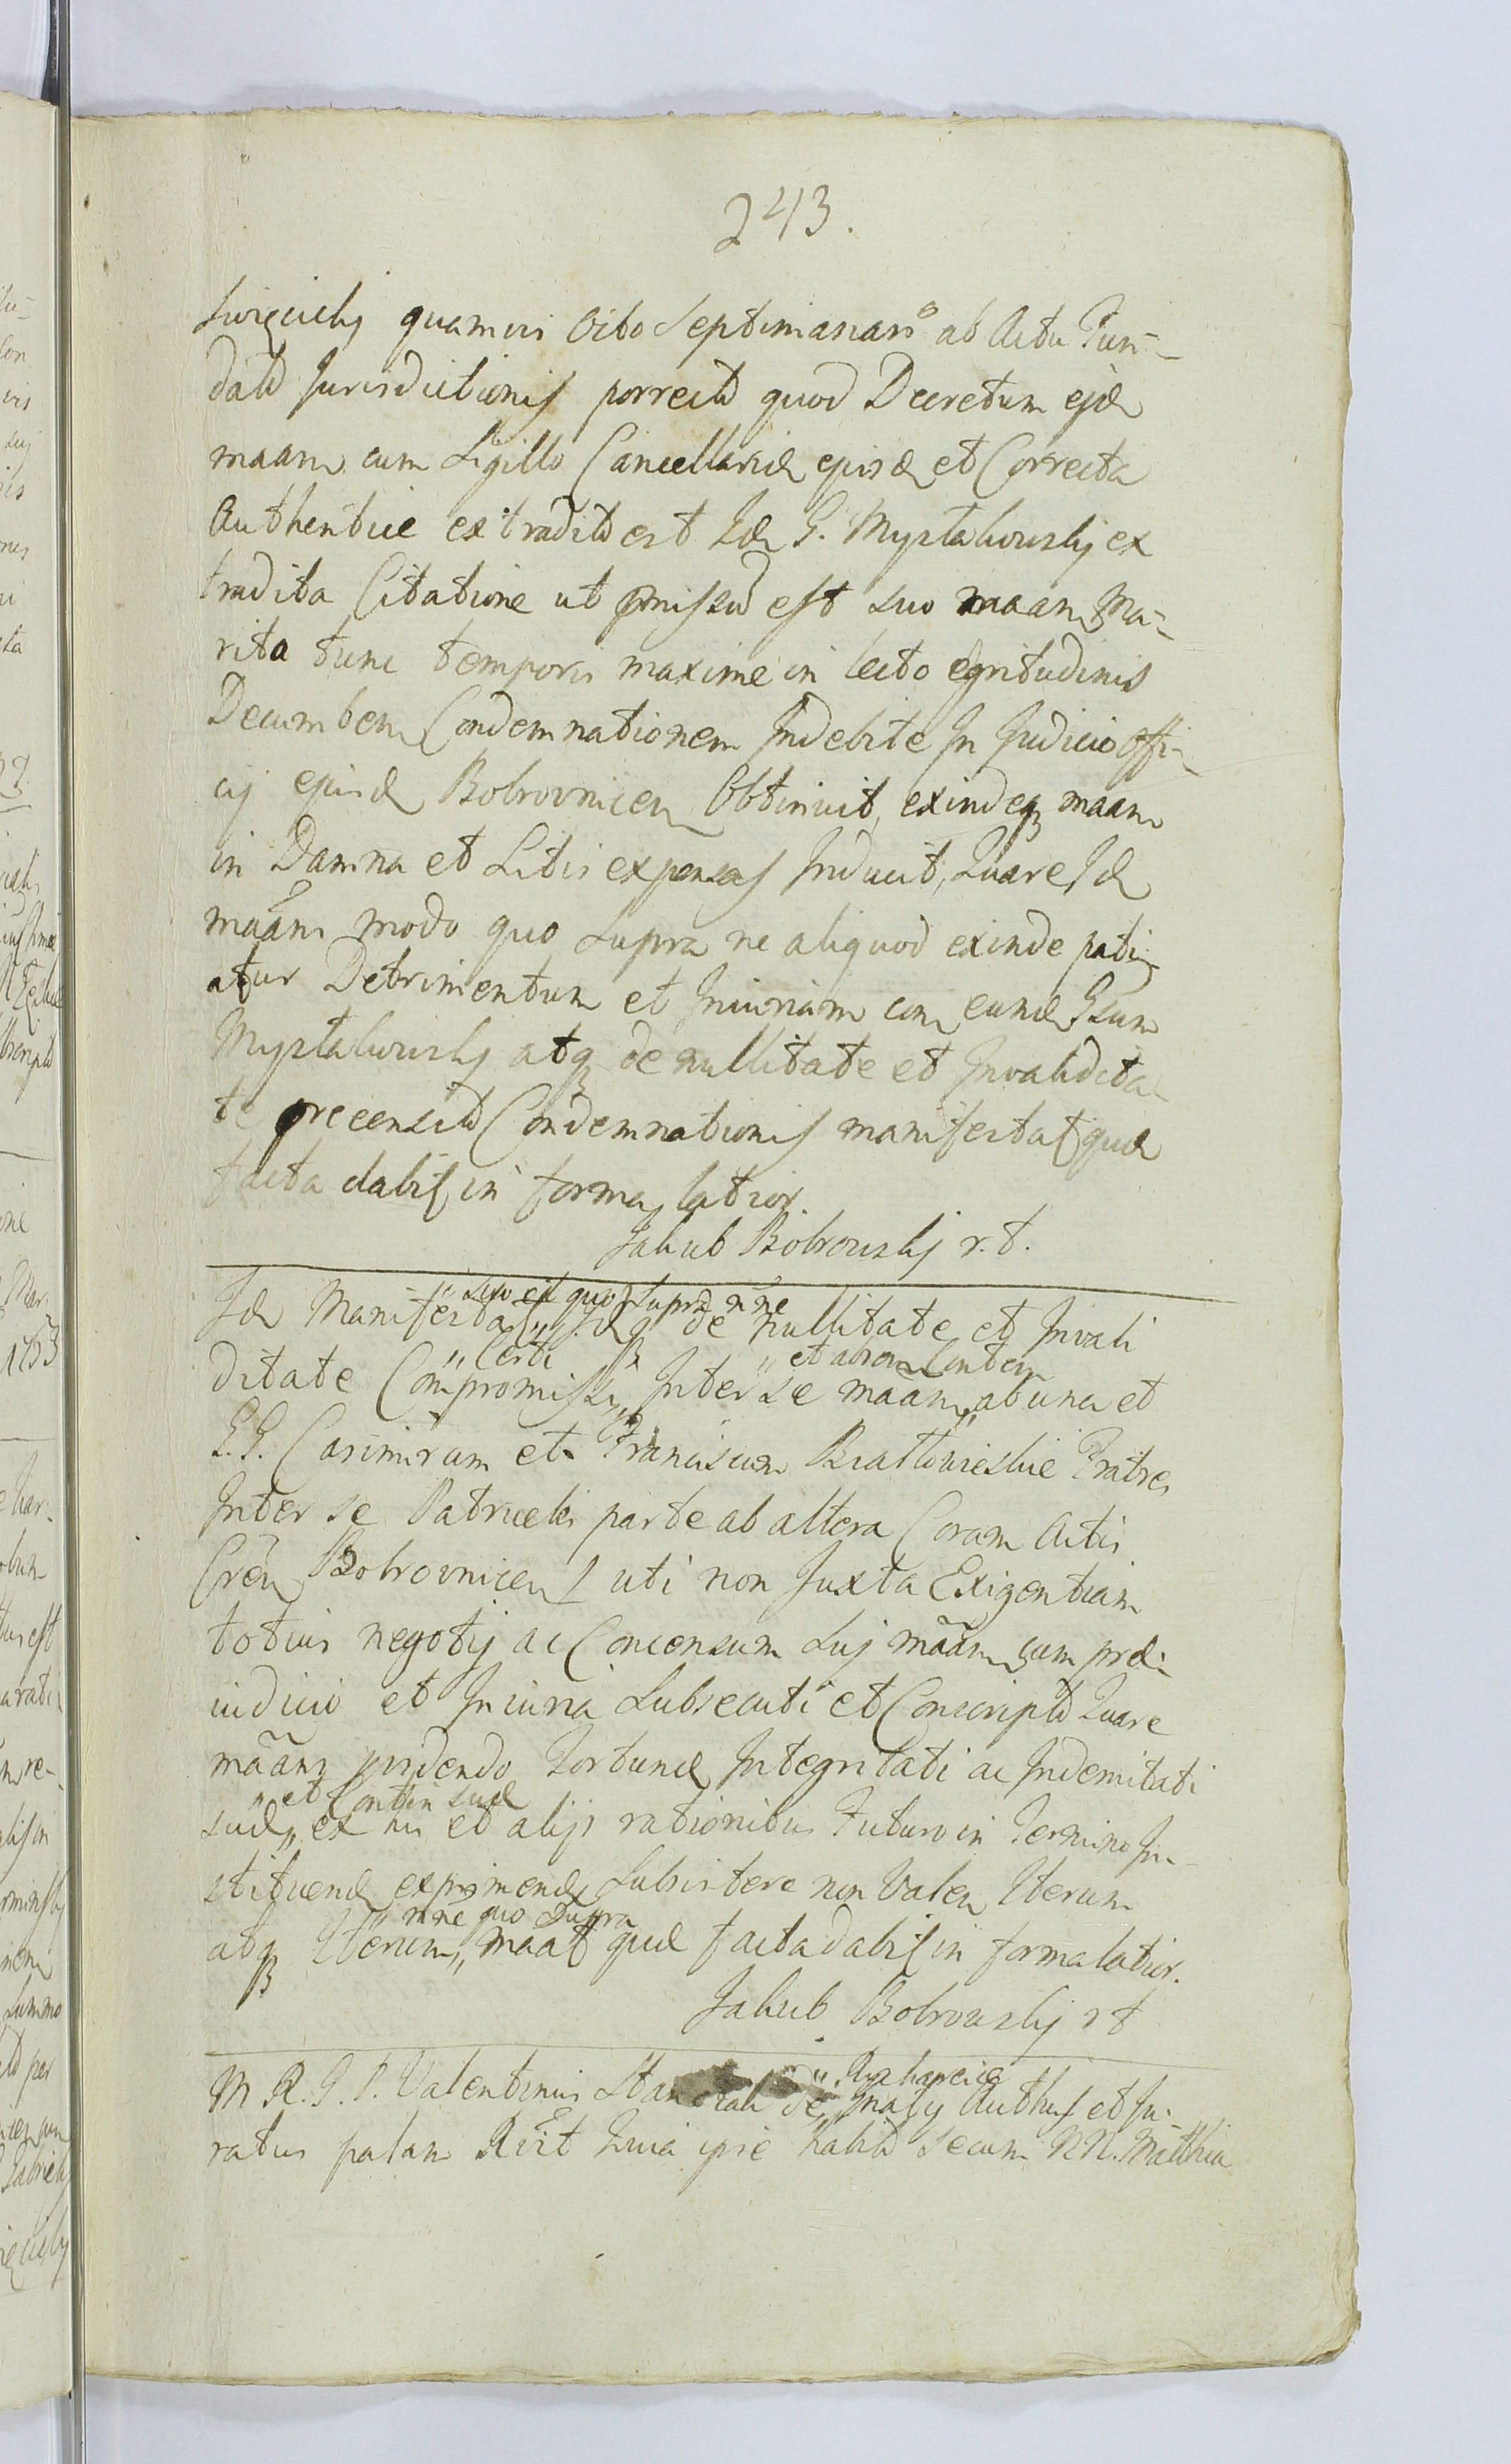 243.
Swięcicky quamvis Octo Septimanarũ ab Actu Fun-
datæ Jurisdictionis porrectæ quod Decretum ejd
maam cum Sigillo Cancellariæ ejusd et Correcta
Authentice extraditæ est Id G. Mystakowsky ex
tradita Citatione ut pmissũ est suo maan Ma-
rito tunc temporis maxime in lecto egritudinis
Decumben Condemnationem Indebite In Judicio Offi-
cij ejusd Bobrovnicen Obtinuit, exindeq maam
in Damna et Litis expensas Inducit, Quare Id
maãns modo quo supra ne aliquod exinde pati-
atur Detrimentum et Iniuriam con eund Gsum
Mystakowsky atq de nullitate et Invalidita-
te precensitæ Condemnationis manifestat quæ
facta dabit in forma latior.
Jakub Bobrowsky r.t.
Id Manifestat de nullitate et Invali
ditate Compromissi Inter se maãn ab una et
G.G. Casimirum et Franciscum Fratres
Inter se Patrueles parte ab altera Coram Actis
Bobrovnicen uti non Juxta Exigentiam
totius negotij ac Concensum Suj mãan cum præ-
iudicio et Iniuria Subsecuti et Conscriptæ Quare
mãans Fortunæ Integritati ac Indemitati
et Contin suæ
suæ ex his et alijs rationibus Futuro in Termino In-
stituend exprimend Subsistere non Valen Iterum
nne quo Supra
atq Iterum, maat quæ facta dabit in forma latior.
Jakub Bobrowsky rt
M R. G. P. Valentinus de Authus et Ju-
ratus palam Rẽit Quia ipse habitæ secum NN. Matthia